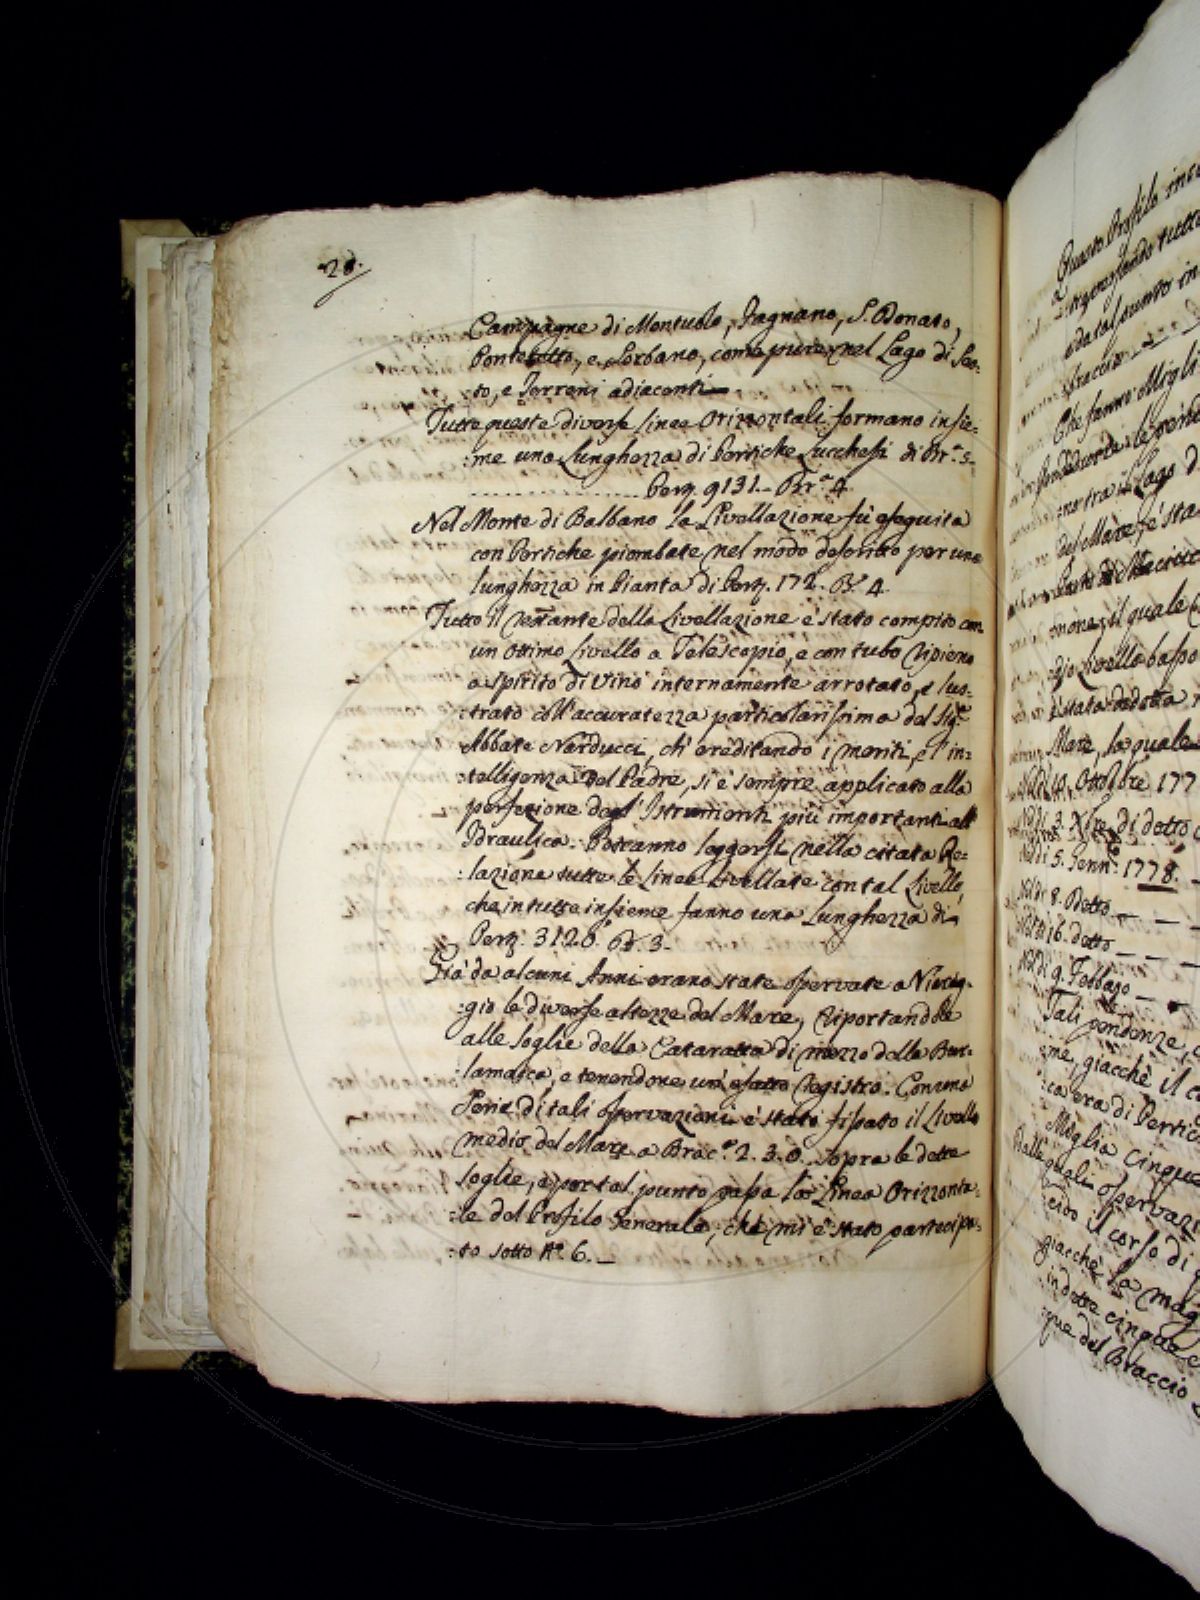 28.
Campagne di Montuolo, Fagnano, S. Donato,
Pontetetto, e Sorbano, come pure nel Lago di Ses-
:to, e Terreni adiacenti
Tutte queste diverse linee Orizzontali formano insie-
:me una Lunghezza di Pertiche Lucchesi di Br.ª 5.
Perz. 9131. Br.ª 4
Nel Monte di Balbano la Livellazione fù eseguita
con Pertiche piombate nel modo descritto per una
lunghezza in Pianta di Perz. 172. B. 4
Tutto il restante della Livellazione è stato compito con
un ottimo Livello a Telescopio, e con tubo ripieno
a spirito di vino internamente arrotato, e lus-
:trato coll'accuratezza particolarissima del Sig.e
Abbate Narducci, ch'ereditando i meriti, e l'in-
:telligenza del Padre, si è sempre applicato alla
perfezione degl'Istrumenti più importanti all'
Idraulica. Potranno leggersi nella citata Re-
:lazione tutte le Linee Livellate con tal Livello,
che in tutte insieme fanno una Lunghezza di
Perz. 3126. B. 3.
Già da alcuni Anni erano state osservate a Viareg-
:gio le diverse altezze del Mare, riportandole
alle soglie della Cataratta di mezzo della Bur-
:lamacca, e tenendone un'esatto registro. Con una
Serie di tali osservazioni è stato fissato il Livello
medio del Mare a Brac.ª 2. 3. 0. sopra le dette
soglie, e per tal punto passa la Linea Orizzonta-
:le del Profilo Generale, che mi è stato partecipa-
:to sotto N.º 6.
Questo Profilo
Che fanno Migli
tra il Lago
del Mare, è sta
il quale
Livello basso
è stata dedotta
Mare, la quale
Ottobre 177
di detto
Nel dì 5. Genn. 1778.
Nel dì 8. Detto
16. detto
9. Febbrajo
Tali pendenze,
:me, giacchè il
:ca era di Pertic
Miglia cinque
Dalle quali osservazi
il corso di
giacchè la mag
in dette cinque
:que del Braccio